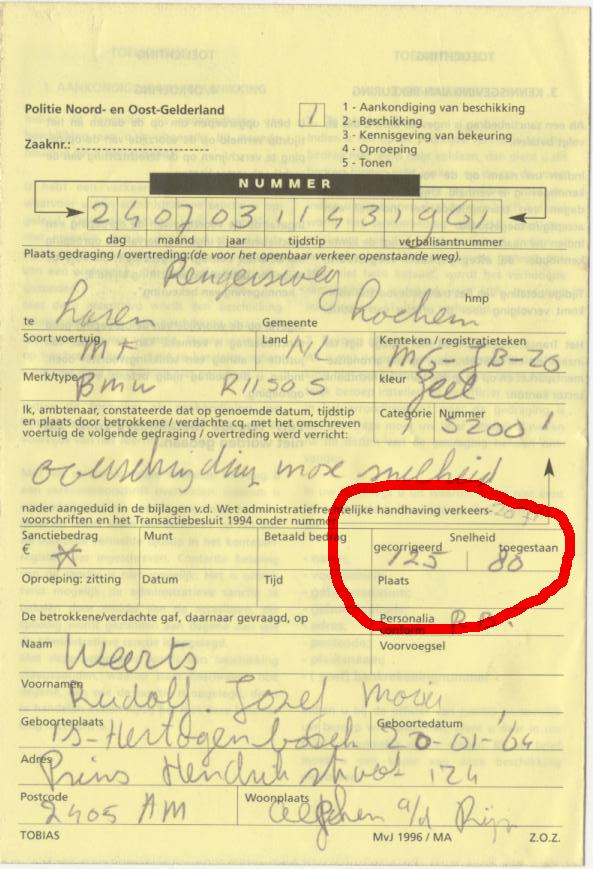 Politie Noord- en Oost-Gelderland
Zaaknr.:
1
1 - Aankondiging van beschikking
2 - Beschikking
3 - Kennisgeving van bekeuring
4 - Oproeping
5 - Tonen
NUMMER
2 4 0 7 0 3 1 1 4 3 1 9 6 1
dag maand jaar tijdstip verbalisantnummer
Plaats gedraging / overtreding:(de voor het openbaar verkeer openstaande weg).
Rengersweg
hmp
te Laren Gemeente Lochem
Soort voertuig MF Land NL Kenteken / registratieteken MG-JB-20
Merk/type BMW R1150S kleur geel
Ik, ambtenaar, constateerde dat op genoemde datum, tijdstip
en plaats door betrokkene / verdachte cq. met het omschreven
voertuig de volgende gedraging / overtreding werd verricht:
Categorie Nummer
1 5200 1
overschrijding max snelheid
nader aangeduid in de bijlagen v.d. Wet administratiefrechtelijke handhaving verkeers-
voorschriften en het Transactiebesluit 1994 onder nummer
Sanctiebedrag Munt Betaald bedrag Snelheid
€ gecorrigeerd toegestaan
125 80
Oproeping: zitting Datum Tijd Plaats
De betrokkene/verdachte gaf, daarnaar gevraagd, op
Personalia
conform
Naam Weerts Voorvoegsel
Voornamen Rudolf Jozef
Geboorteplaats 's-Hertogenbosch Geboortedatum 20-01-64
Adres Prins Hendrikstraat 124
Postcode 2405 AM Woonplaats Alphen a/d Rijn
TOBIAS MvJ 1996 / MA Z.O.Z.